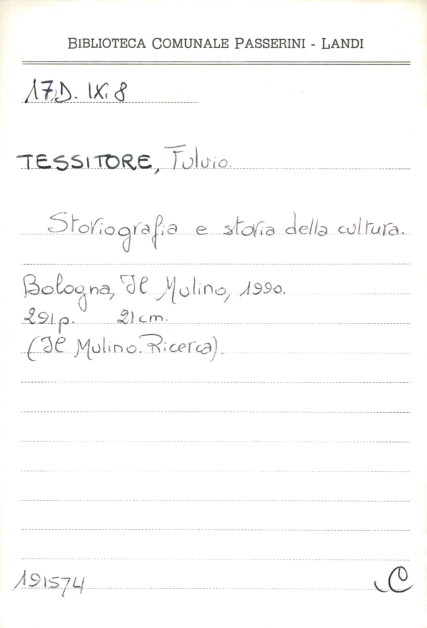 BIBLIOTECA COMUNALE PASSERINI - LANDI
17.D. IX. 8
TESSITORE, Fulvio.
Storiografia e storia della cultura.
Bologna, Il Mulino, 1990.
291p. 21cm.
(Il Mulino. Ricerca).
191574
C